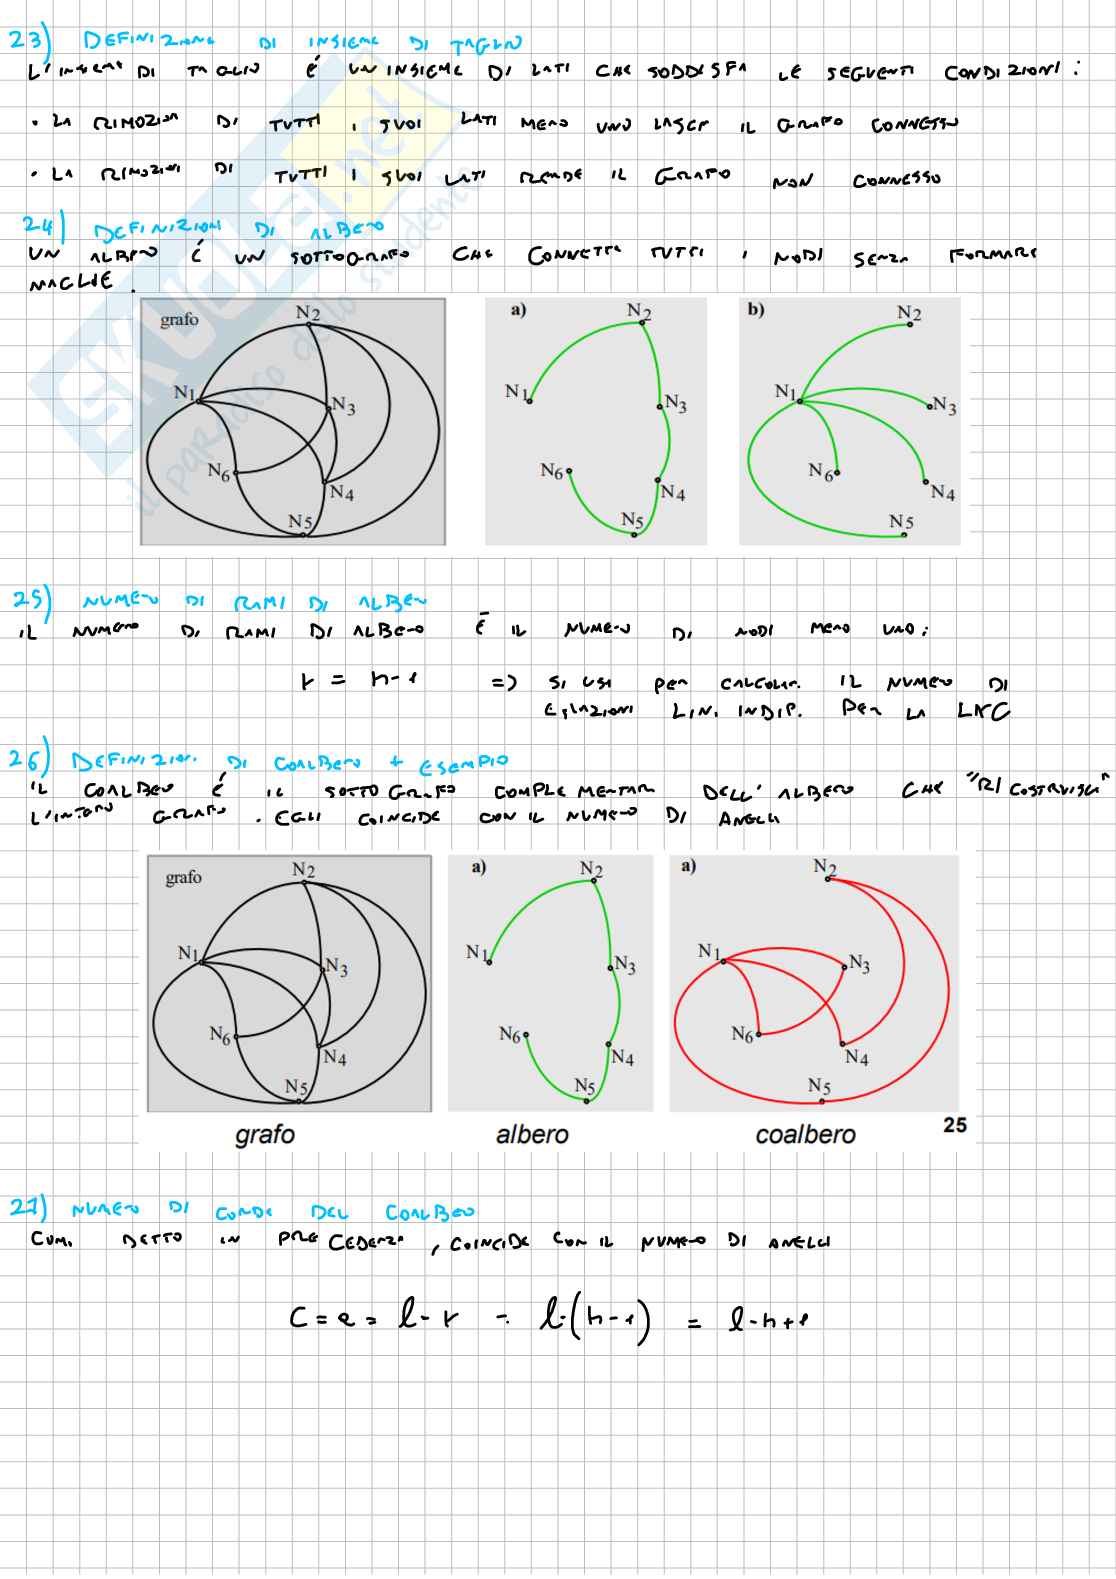 23) DEFINIZIONE DI INSIEME DI TAGLIO
L'INSIEME DI TAGLIO É UN INSIEME DI LATI CHE SODDISFA LE SEGUENTI CONDIZIONI:
• LA RIMOZION DI TUTTI I SUOI LATI MENO UNO LASCIA IL GRAFO CONNESSO
• LA RIMOZIONE DI TUTTI I SUOI LATI RENDE IL GRAFO NON CONNESSO
24) DEFINIZIONE DI ALBERO
UN ALBERO É UN SOTTOGRAFO CHE CONNETTE TUTTI I NODI SENZA FORMARE
MAGLIE.
grafo N2 N1 N3 N6 N4 N5
a) N2 N1 N3 N6 N4 N5
b) N2 N1 N3 N6 N4 N5
25) NUMERO DI RAMI DI ALBERO
IL NUMERO DI RAMI DI ALBERO É IL NUMERO DI NODI MENO UNO:
r = n-1 => SI USA PER CALCOLARE IL NUMERO DI
EQUAZIONI LIN. INDIP. PER LA LKC
26) DEFINIZIONE DI COALBERO + ESEMPIO
IL COALBERO É IL SOTTOGRAFO COMPLEMENTARE DELL'ALBERO CHE "RICOSTRUISCE"
L'INTERO GRAFO. EGLI COINCIDE CON IL NUMERO DI ANELLI
grafo N2 N1 N3 N6 N4 N5
a) N2 N1 N3 N6 N4 N5
a) N2 N1 N3 N6 N4 N5
grafo albero coalbero 25
27) NUMERO DI CORDE DEL COALBERO
COME DETTO IN PRECEDENZA, COINCIDE CON IL NUMERO DI ANELLI
C = a = l - r = l-(n-1) = l-n+1
SKUOLA.net
il paradiso dello studente